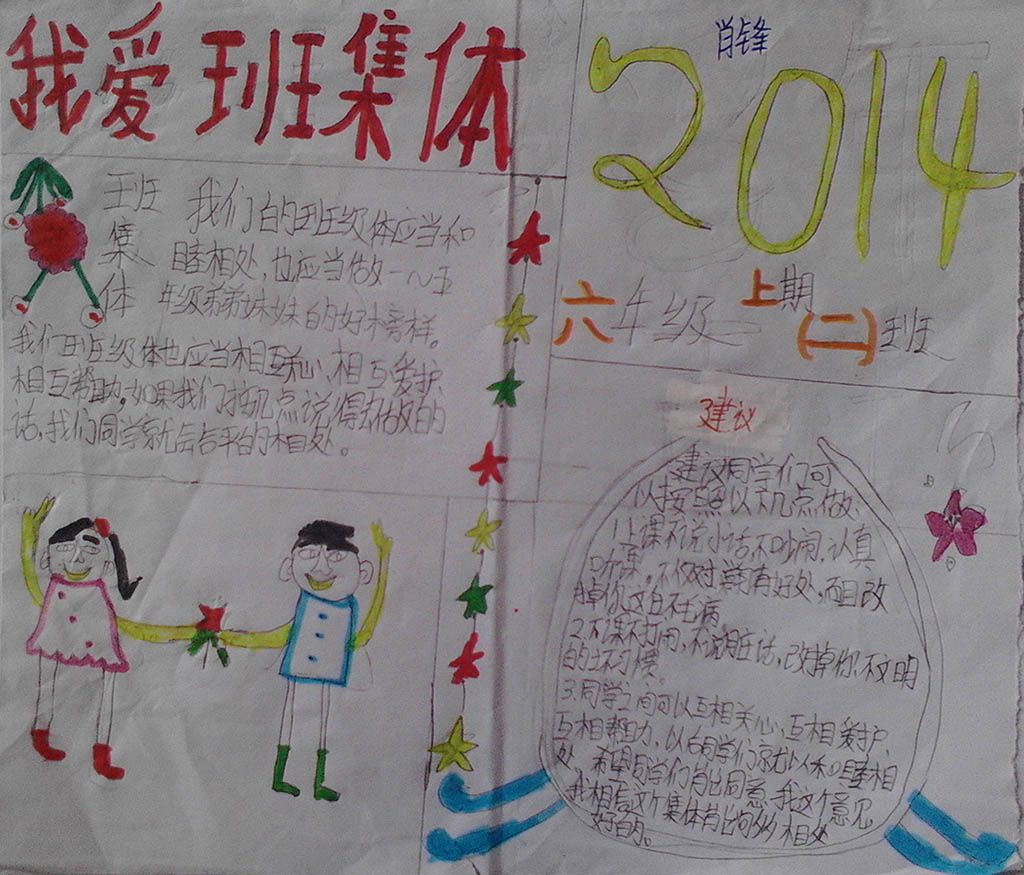 我爱班集体
肖锋
2014
六年级上期(二)班
班集体
我们的班级体应当和
睦相处,也应当做一~五
年级弟弟妹妹的好榜样。
我们班级体也应当相互关心、相互爱护、
相互帮助。如果我们按几点说得去做的
话,我们同学就会右平的相处。
建议
建议同学们可
以按照以下几点做、
1.上课不说小话,不吵闹,认真
听课。不仅对学习有好处,而且改
掉你这白不毛病
2.下课不打闹,不说脏话,改掉你不文明
的坏习惯。
3.同学之间可以互相关心、互相爱护、
互相帮力,以后同学们就以和睦相
处、希望同学们肯比同意、我这个意见
我相信这个集体肯比够 相处
好的。